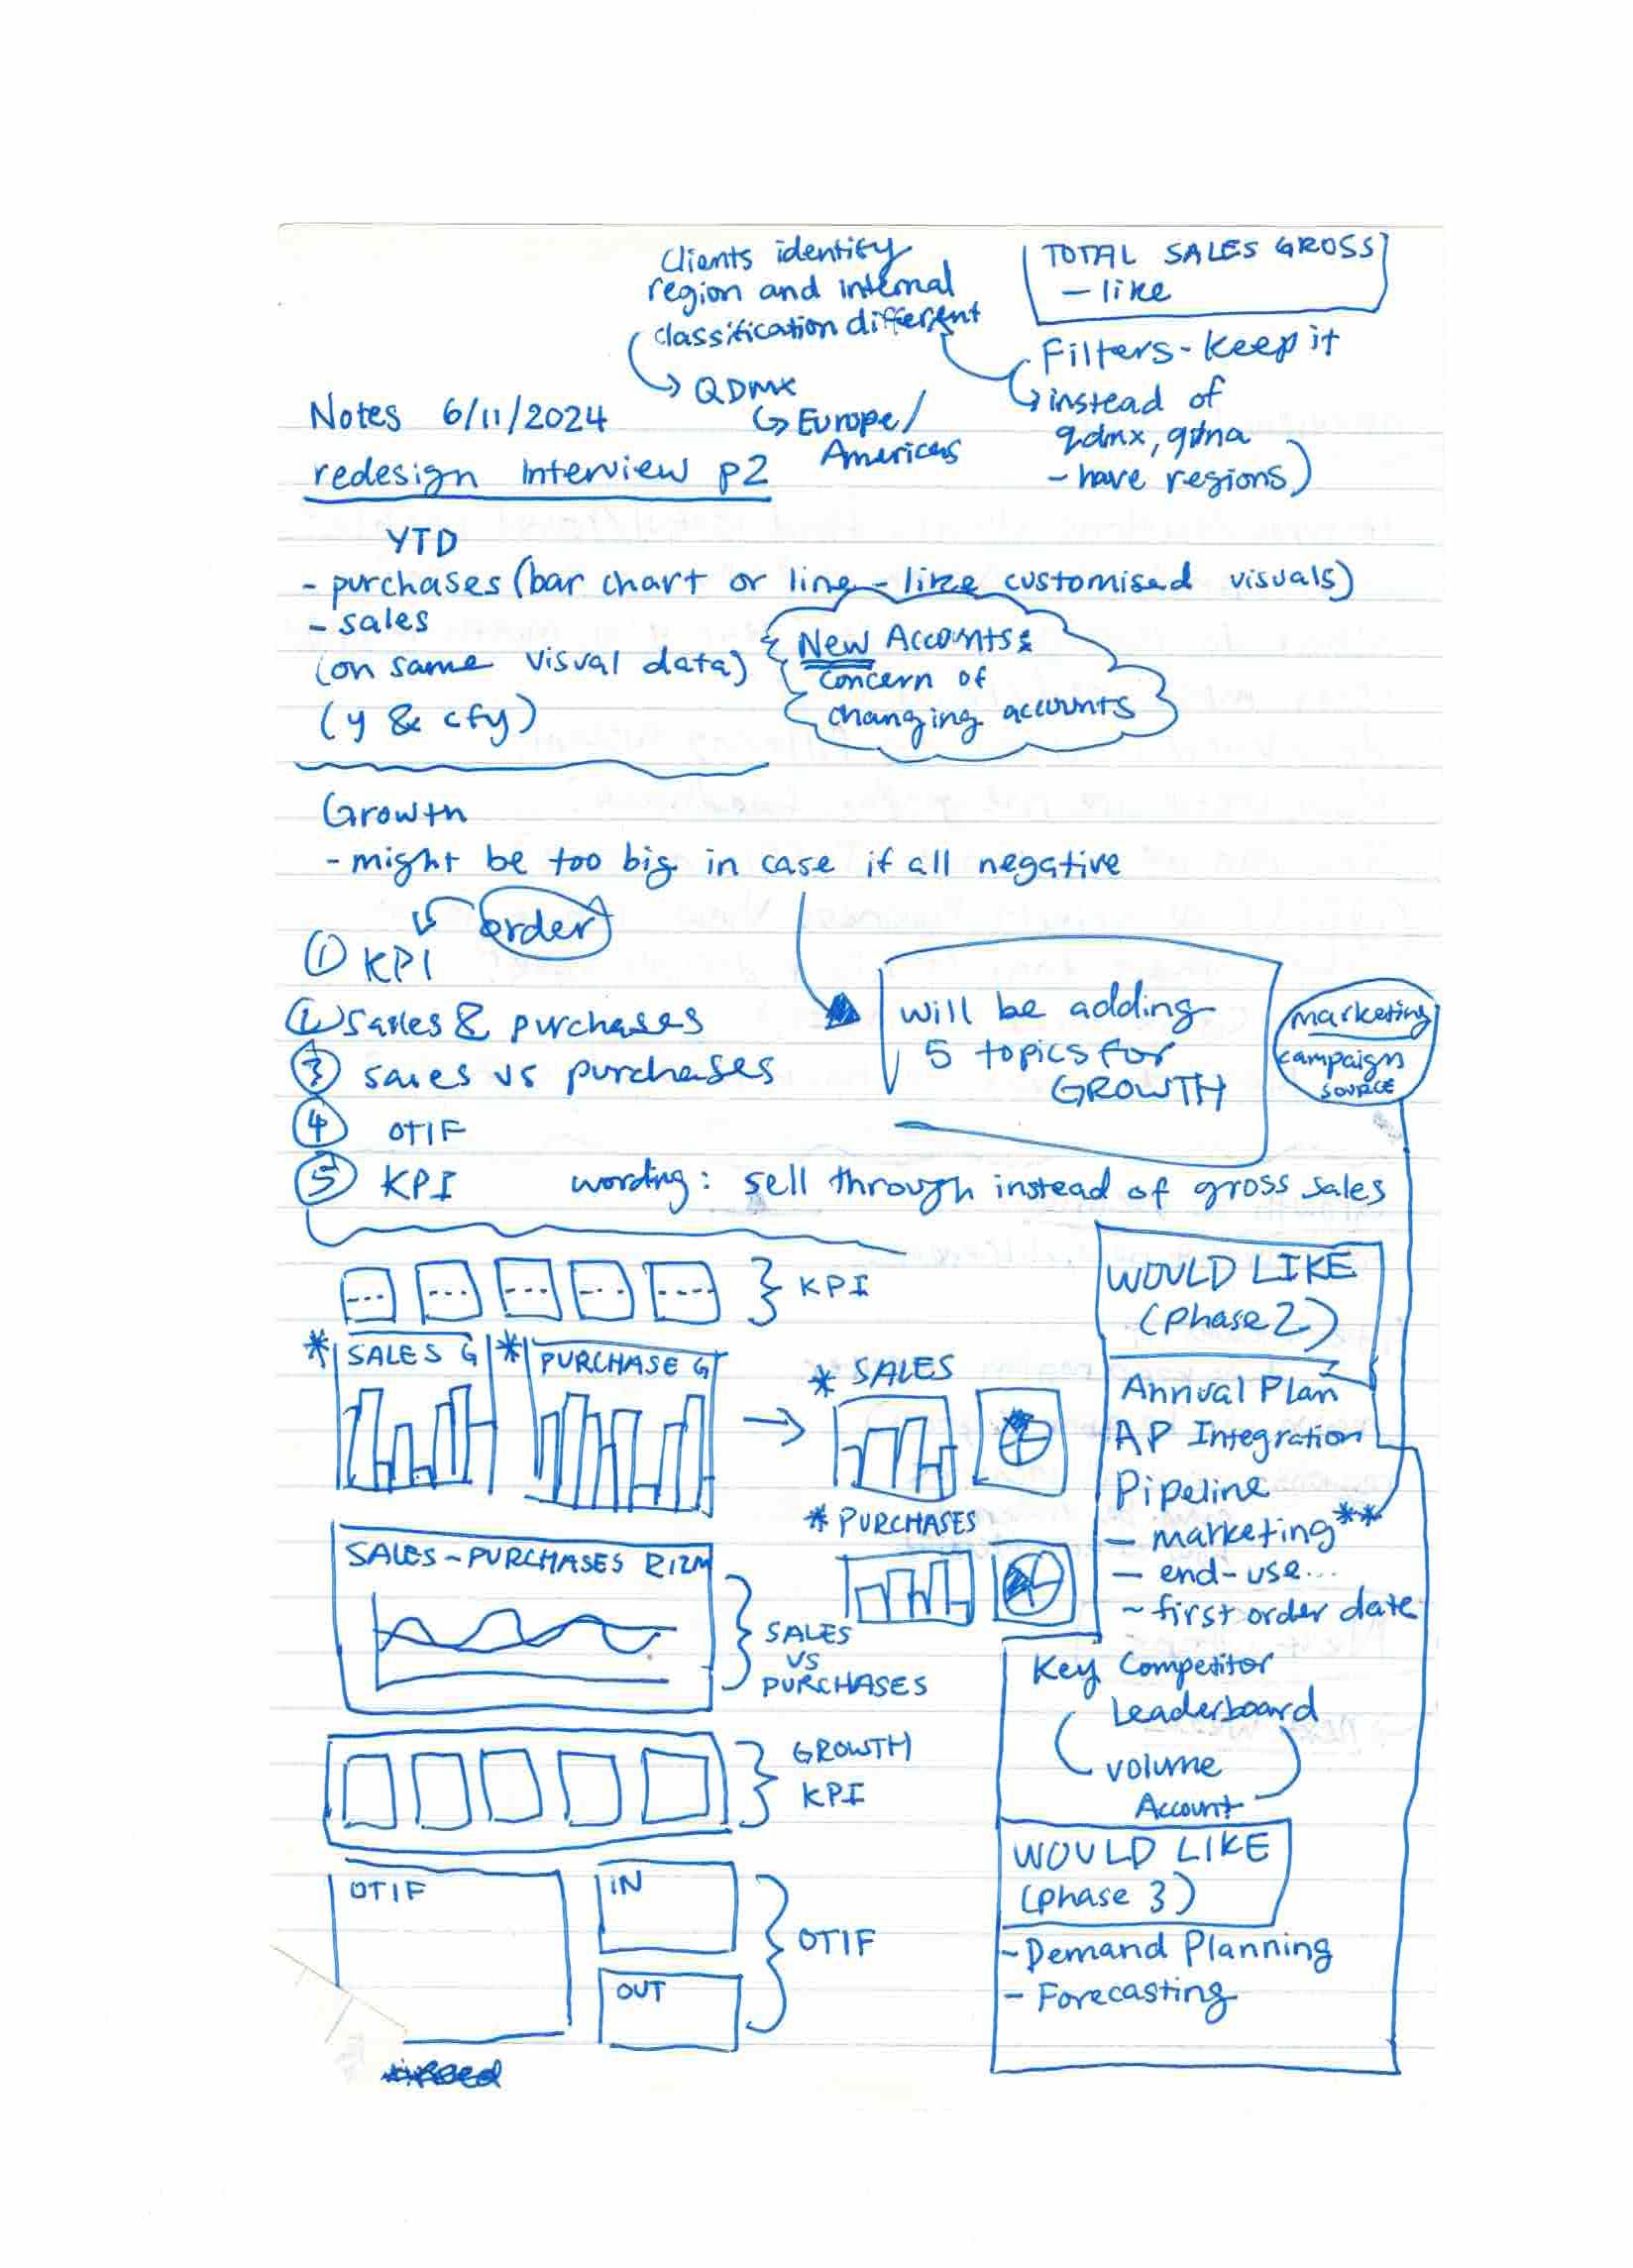 Clients identify
region and internal
classification different
QDMX
Europe/
Americas
TOTAL SALES GROSS
- like
Filters - keep it
instead of
qdmx, qdna
- have regions)
Notes 6/11/2024
redesign interview p2
YTD
- purchases (bar chart or line - like customised visuals)
- sales
(on same visual data)
(y & cfy)
New Accounts:
concern of
changing accounts
Growth
- might be too big in case if all negative
order
① KPI
② sales & purchases
③ sales vs purchases
④ OTIF
⑤ KPI
will be adding
5 topics for
GROWTH
marketing
campaign
SOURCE
wording: sell through instead of gross sales
KPI
* SALES G
* PURCHASE G
* SALES
* PURCHASES
SALES - PURCHASES R12M
SALES
VS
PURCHASES
GROWTH
KPI
OTIF
IN
OUT
OTIF
WOULD LIKE
(phase 2)
Annual Plan
AP Integration
Pipeline
- marketing **
- end-use...
- first order date
Key Competitor
Leaderboard
volume
Account
WOULD LIKE
(phase 3)
- Demand Planning
- Forecasting